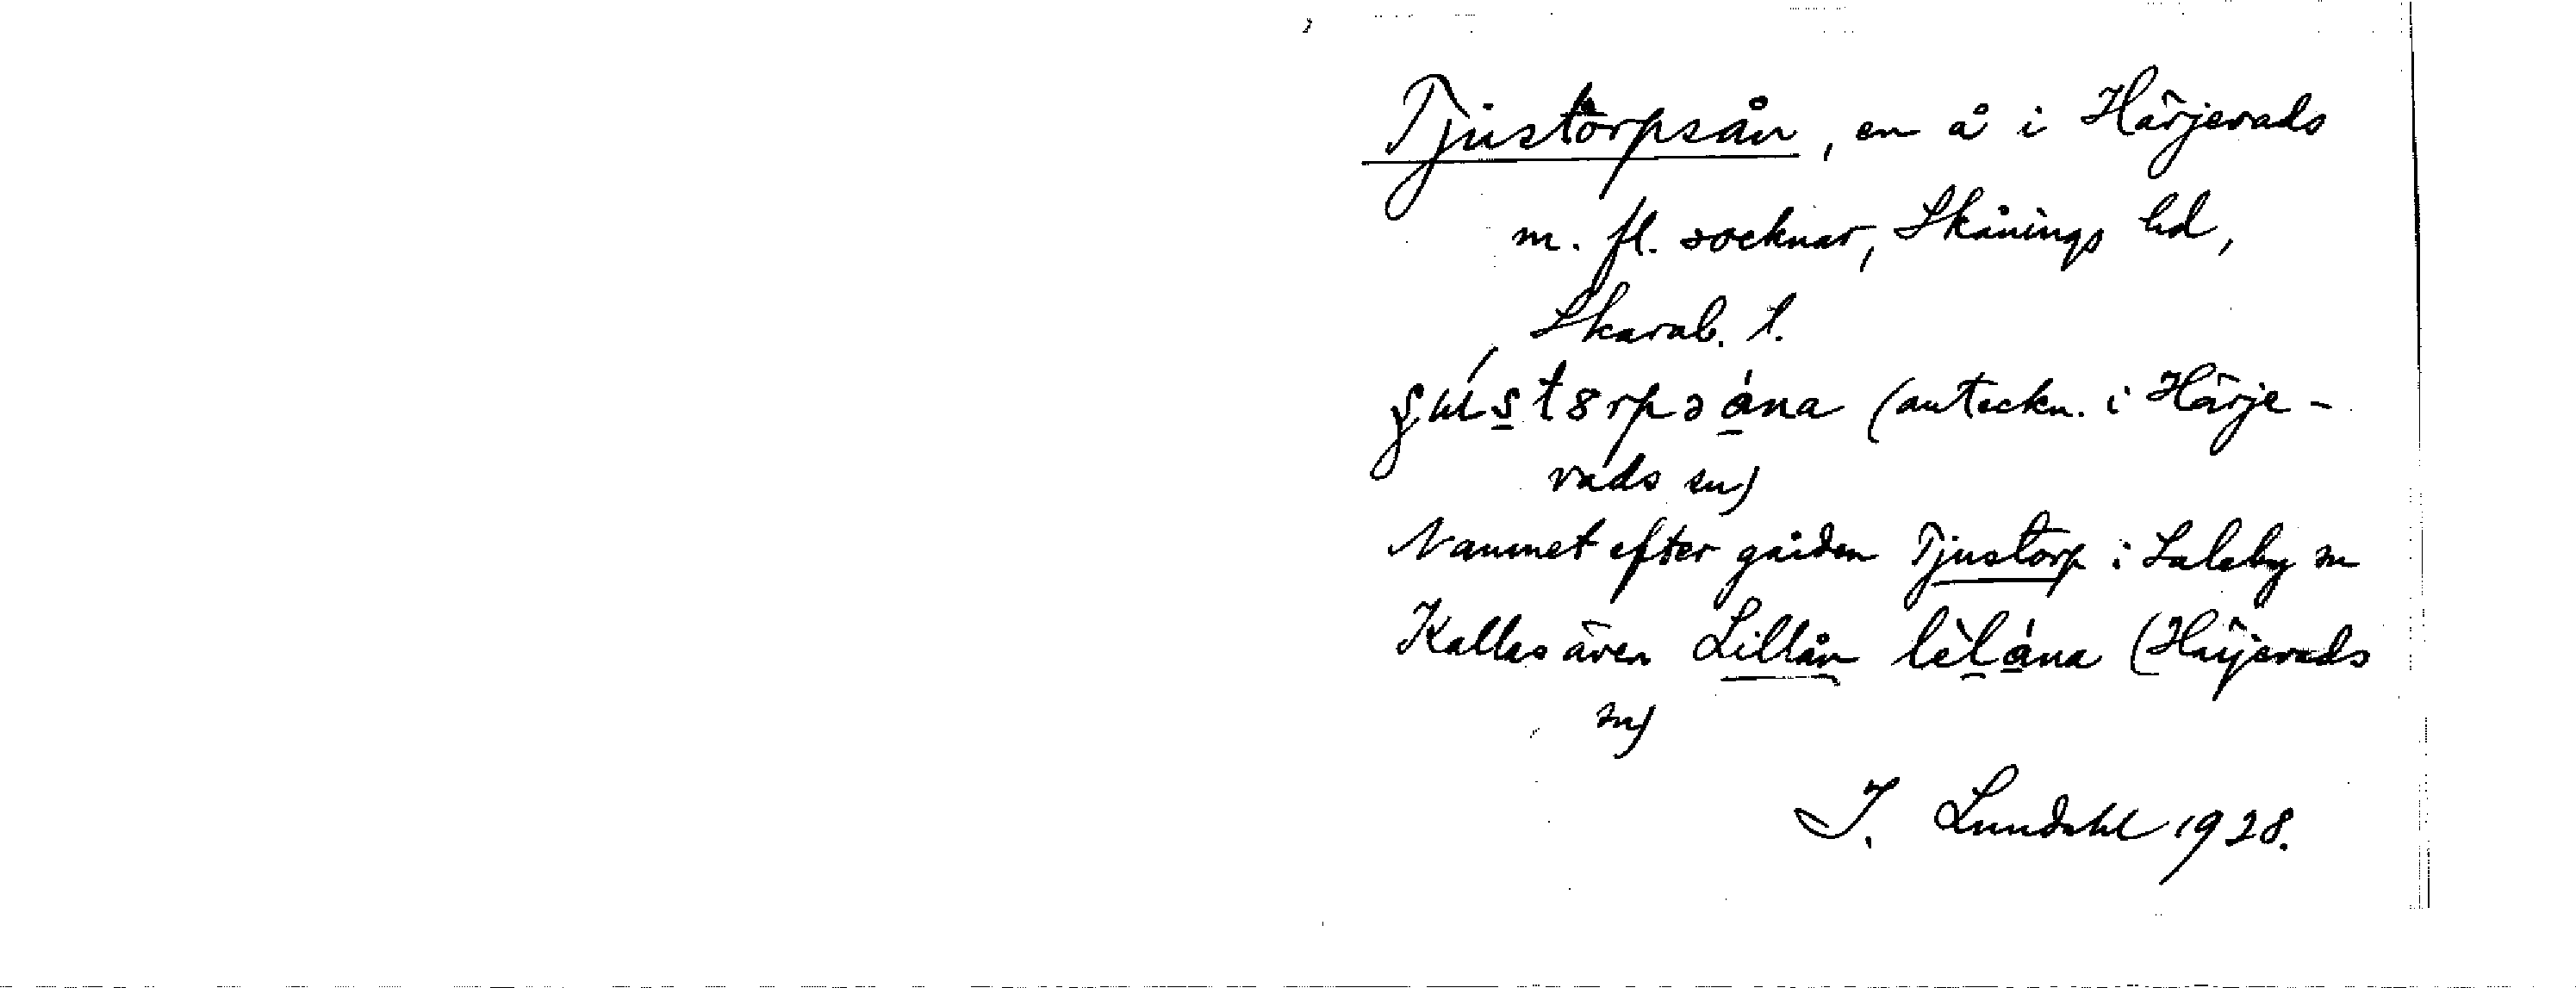 Tjustorpsån, en å i Härjevads
m. fl. socknar, Skånings hd,
Skarab. l.
(anteckn. i Härje-
vads sn)
Namnet efter gården Tjustorp i Saleby sn
Kallas även Lillån lèlána (Härjevads
sn)
I. Lundahl 1928.